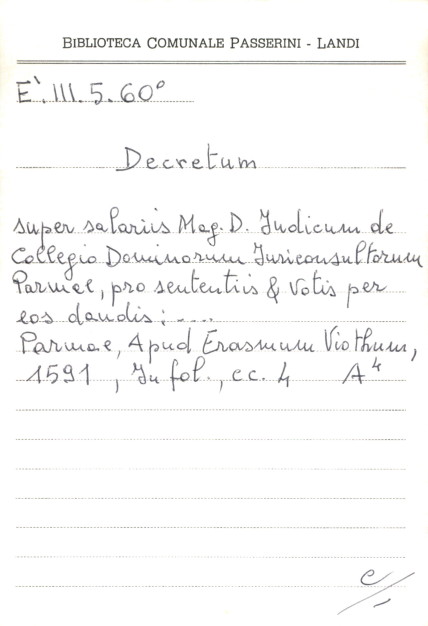 BIBLIOTECA COMUNALE PASSERINI - LANDI
E'. III. 5. 60°
Decretum
super salariis Mag. D. Judicum de
Collegio Dominorum Juriconsultorum
Parmae, pro sententiis & votis per
eos dandis: ....
Parmae, Apud Erasmum Viothum,
1591, In fol., cc. 4 A⁴